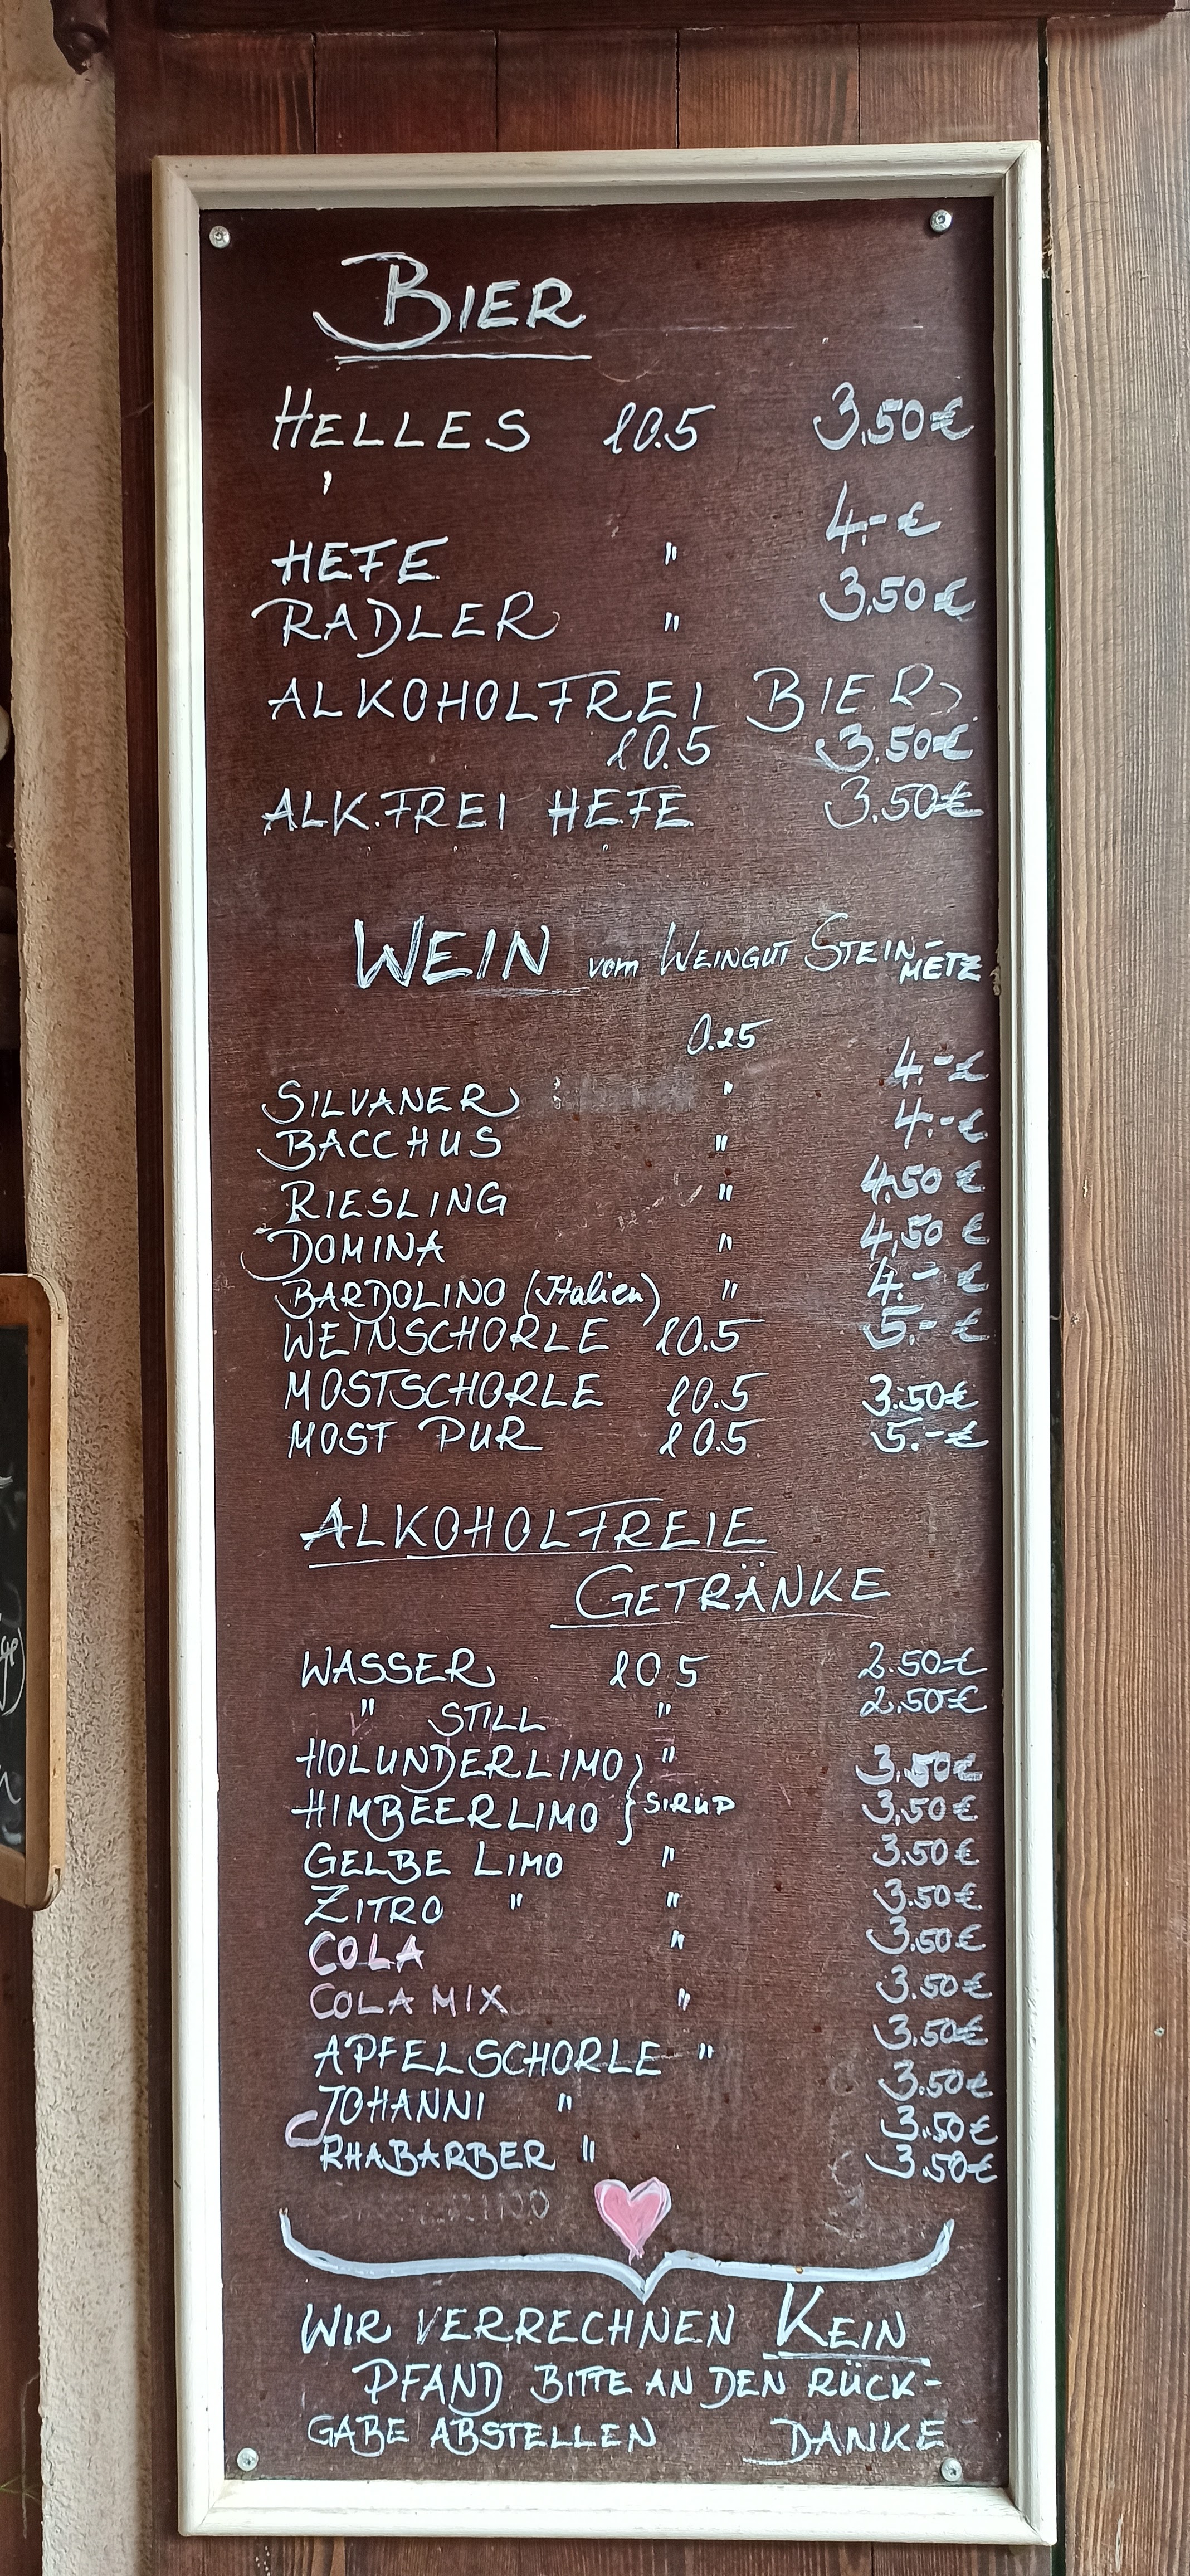 BIER
HELLES l 0.5 3.50€
HEFE " 4.- €
RADLER " 3.50€
ALKOHOLFREI BIER
l 0.5 3.50€
ALK.FREI HEFE 3.50€
WEIN vom WEINGUT STEIN-
METZ
0.25
SILVANER " 4.-€
BACCHUS " 4.-€
RIESLING " 4.50 €
DOMINA " 4.50 €
BARDOLINO (Italien) " 4.- €
WEINSCHORLE l 0.5 5.- €
MOSTSCHORLE l 0.5 3.50€
MOST PUR l 0.5 5.-€
ALKOHOLFREIE
GETRÄNKE
WASSER l 0.5 2.50€
" STILL " 2.50€
HOLUNDERLIMO " 3.50€
HIMBEERLIMO } SIRUP 3.50€
GELBE LIMO " 3.50€
ZITRO " " 3.50€
COLA " 3.50€
COLA MIX " 3.50€
APFELSCHORLE " 3.50€
JOHANNI " 3.50€
RHABARBER " 3.50€
3.50€
WIR VERRECHNEN KEIN
PFAND BITTE AN DEN RÜCK-
GABE ABSTELLEN DANKE